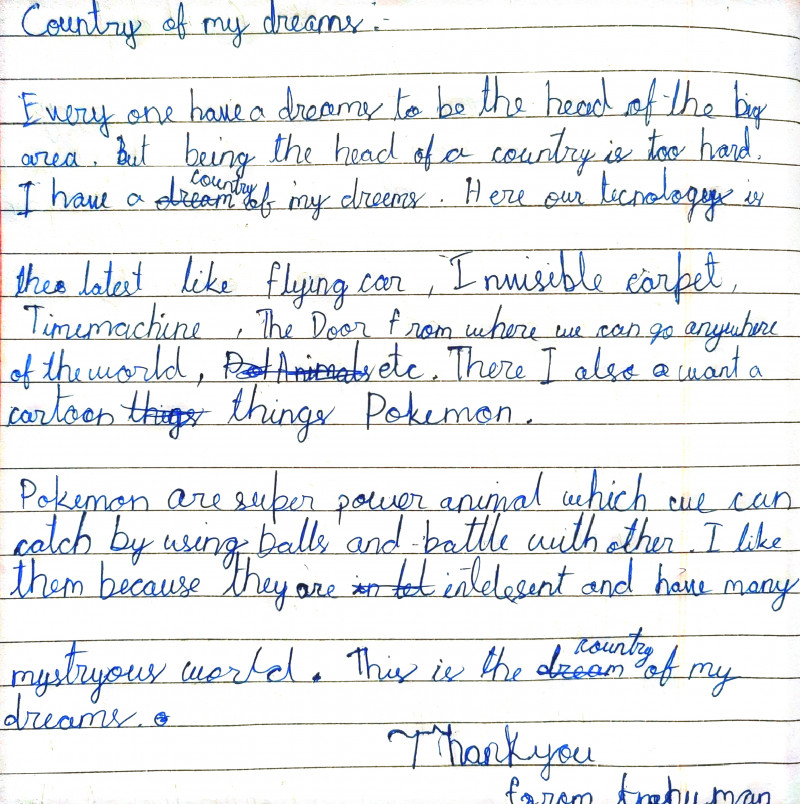 Country of my dreams :-
Every one have a dreams to be the head of the big
area. But being the head of a country is too hard.
I have a country of my dreems. Here our tecnology is
the latest like flying car, Invisible carpet,
Timemachine, The Door from where we can go anywhere
of the world, etc. There I also want a
cartoon things Pokemon.
Pokemon are super power animal which we can
catch by using balls and battle with other. I like
them because they are intelegent and have many
mystryous world. This is the country of my
dreams.
Thankyou